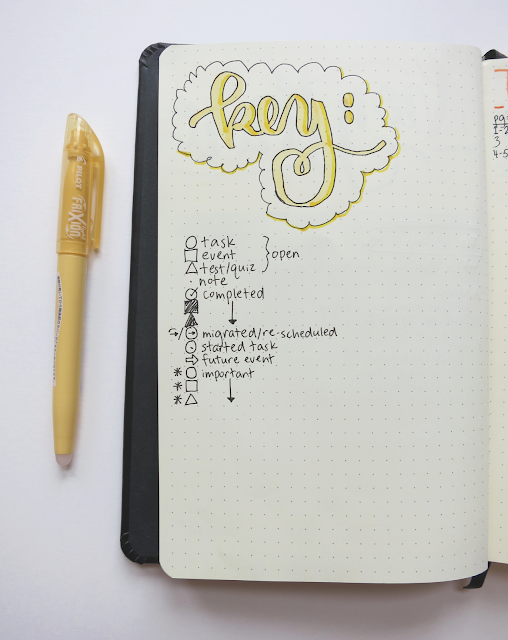 key:
task
event
test/quiz
open
note
completed
migrated/re-scheduled
started task
future event
important
PILOT
FRiXion
pg:
1-2
3
4-5